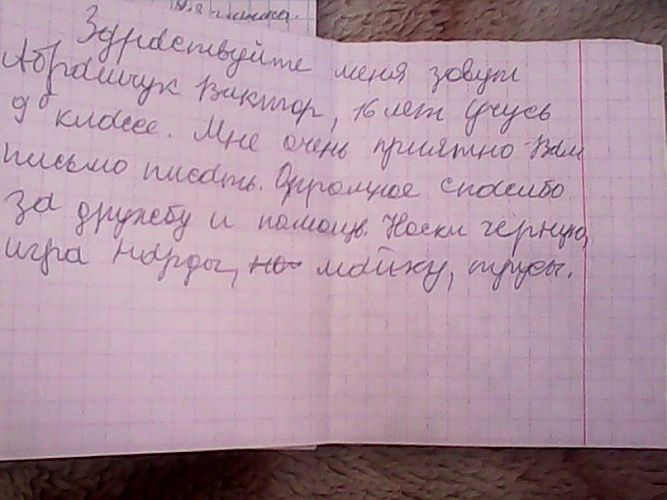 Здраствуйте меня зовут
Абрамчук Виктор, 16 лет учусь
9б классе. Мне очень приятно Вам
письмо писать. Огромное спасибо
за дружбу и помощь. Носки черную,
игра нарды, но майку, трусы.